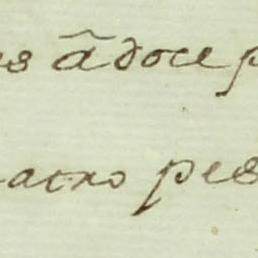 es ã doce p
atro pes